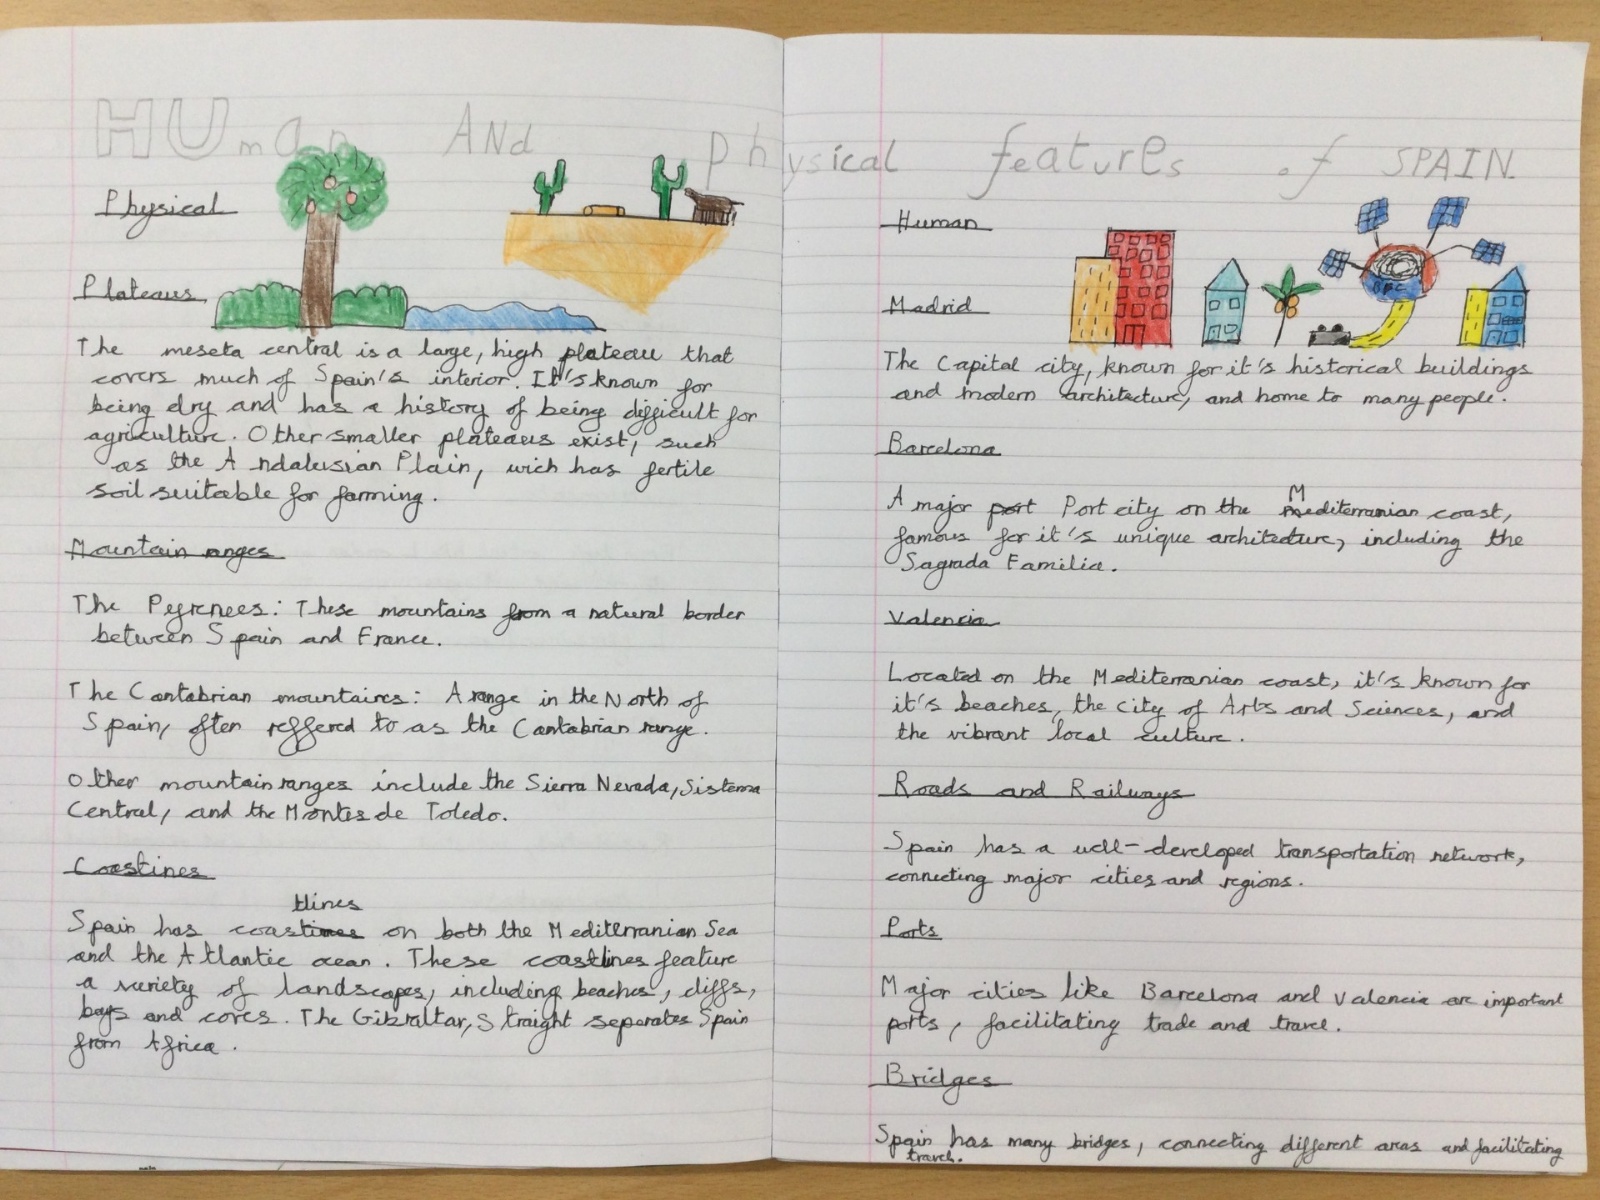 HUman AND physical features of SPAIN
Physical
Plateaus
The meseta central is a large, high plateau that
covers much of Spain's interior. It's known for
being dry and has a history of being difficult for
agriculture. Other smaller plateaus exist, such
as the Andalusian Plain, wich has fertile
soil suitable for farming.
Mountain ranges
The Pyrenees: These mountains from a natural border
between Spain and France.
The Cantabrian mountaires: A range in the North of
Spain, often reffered to as the Cantabrian range.
Other mountain ranges include the Sierra Nevada, Sistema
Central, and the Montes de Toledo.
Coastines
tlines
Spain has coastines on both the Mediterranian Sea
and the Atlantic ocean. These coastlines feature
a variety of landscapes, including beaches, cliffs,
bays and coves. The Gibraltar, Straight seperates Spain
from Africa.
Human
BBC
Madrid
The Capital city, known for it's historical buildings
and modern architecture, and home to many people.
Barcelona
M
A major port Port city on the mediterranian coast,
famous for it's unique architecture, including the
Sagrada Familia.
Valencia
Located on the Mediterranian coast, it's known for
it's beaches, the City of Arts and Sciences, and
the vibrant local culture.
Roads and Railways
Spain has a well-developed transportation network,
connecting major cities and regions.
Ports
Major cities like Barcelona and Valencia are important
ports, facilitating trade and travel.
Bridges
Spain has many bridges, connecting different areas and facilitating
travel.